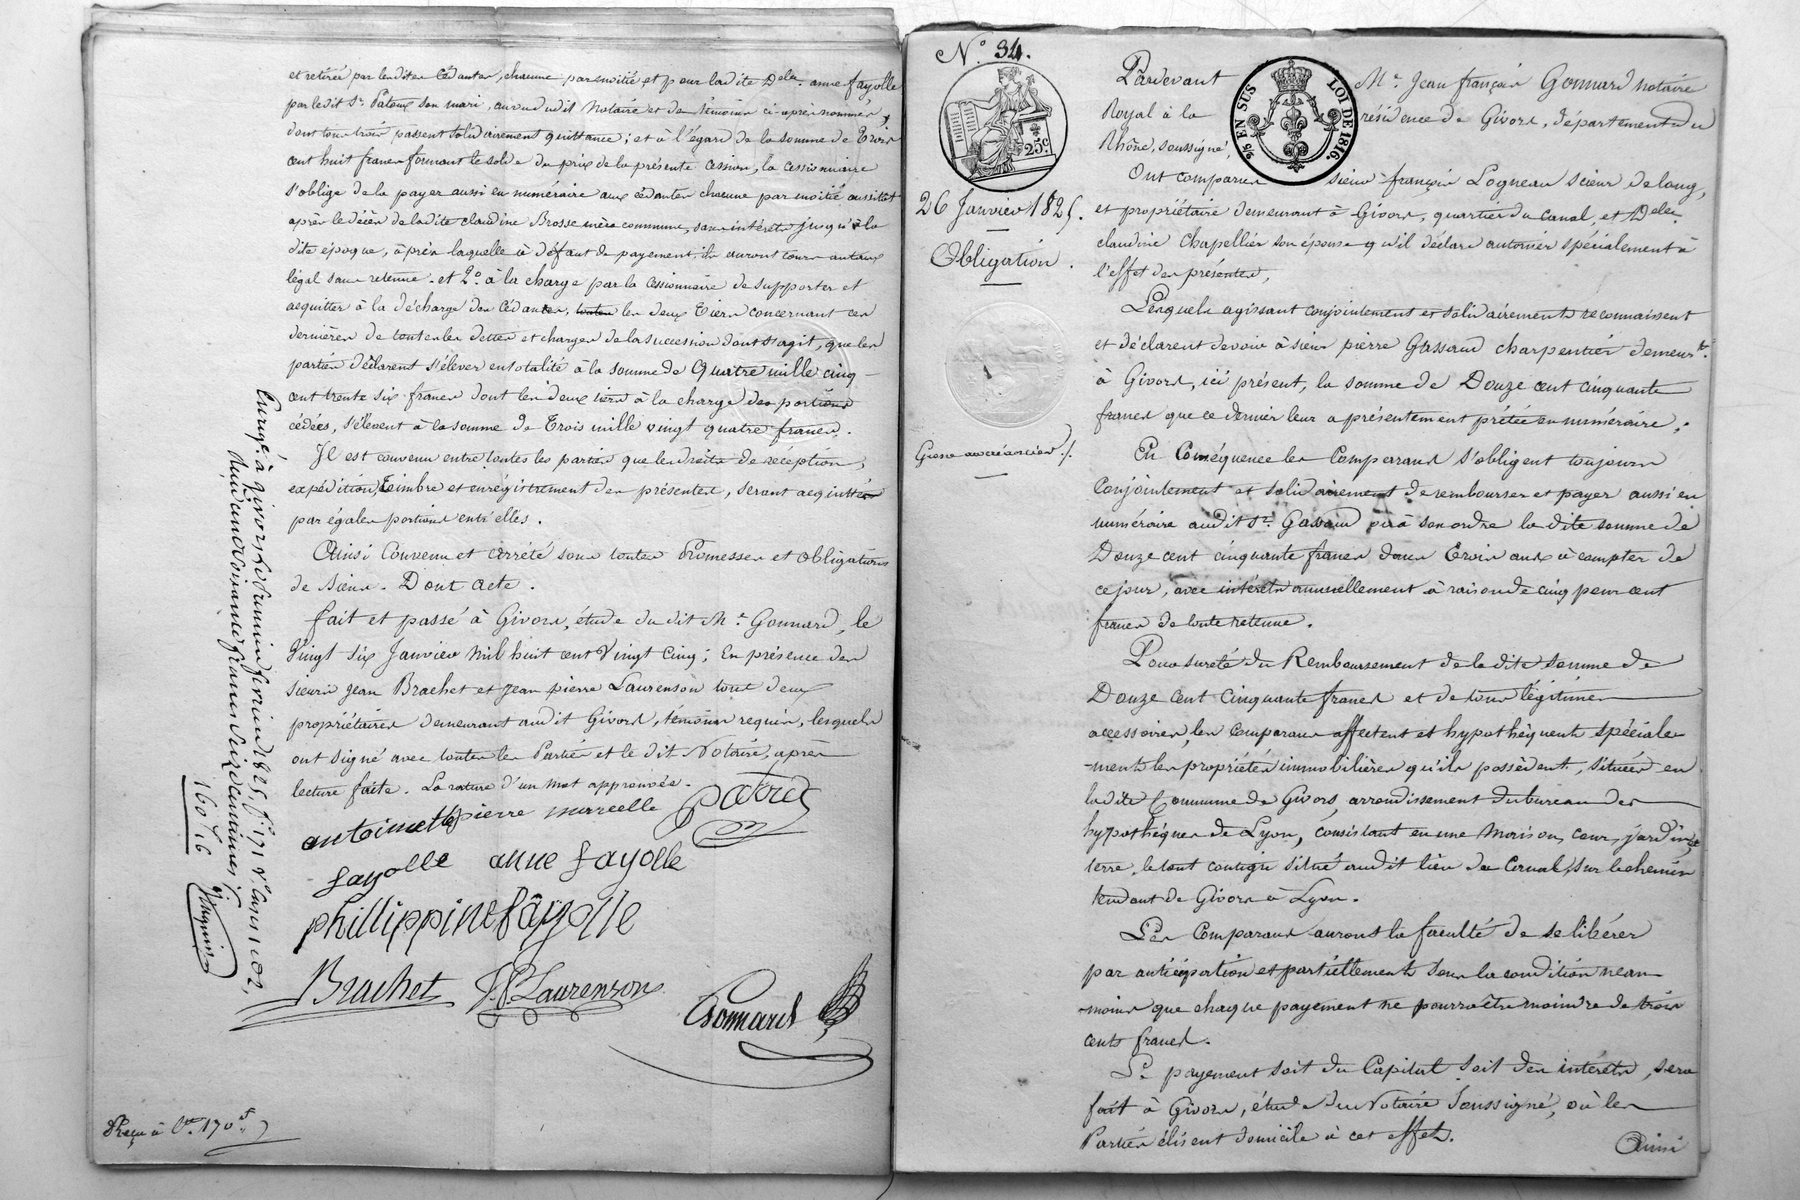 et retirée par lesdites Cédantes, chacune par moitié et pour ladite Delle anne fayolle
par ledit Sr. Pateux son mari, au vu dudit Notaire et des témoins ci-après nommés,
dont tous trois passent solidairement quittance; et à l'égard de la somme de Trois
cent huit francs formant le solde du prix de la présente cession, la cessionnaire
s'oblige de la payer aussi en numéraire aux cédantes chacune par moitié aussitôt
après le décès de ladite claudine Brosse mère commune, sans intérêts jusqu'à la
dite époque, après laquelle à défaut de payement, ils auront cours au taux
légal sans retenue. et 2o. à la charge par la Cessionnaire de supporter et
acquitter à la décharge des Cédantes, toutes les deux Tiers concernant ces
dernières de toutes les dettes et charges de la succession dont s'agit, que les
parties déclarent s'élever en totalité à la somme de Quatre mille cinq
cent trente six francs dont les deux tiers à la charge des portions
cédées, s'élèvent à la somme de Trois mille vingt quatre francs.
Il est convenu entre toutes les parties que les droits de réception,
expédition, Timbre et enrégistrement des présentes, seront acquittés
par égales portions entr'elles.
Ainsi Convenu et arrêté sous toutes Promesses et obligations
de Biens. Dont acte.
fait et passé à Givors, étude du dit Me. Gonnard, le
Vingt six Janvier mil huit cent Vingt Cinq; En présence des
sieurs Jean Brachet et Jean pierre Laurenson tous deux
propriétaires demeurant audit Givors, témoins requis, lesquels
ont signé avec toutes les Parties et le dit Notaire, après
lecture faite. La rature d'un mot approuvée.
antoinette pierre marcelle
fayolle anne fayolle
phillippine fâyolle
Brachet J.P. Laurenson
Gonnard
160 f 16
No. 34.
25c
5/6 EN SUS LOI DE 1816.
26 Janvier 1825.
Obligation.
Grosse au créancier
Pardevant Me. Jean françois Gonnard notaire
Royal à la résidence de Givors, département du
Rhône, soussigné,
Ont comparu sieur françois Logneau scieur de long,
et propriétaire demeurant à Givors, quartier du Canal, et Delle
claudine Chapellier son épouse qu'il déclare autoriser spécialement à
l'effet des présentes,
Lesquels agissant conjointement et solidairement reconnaissent
et déclarent devoir à sieur pierre Gassaud charpentier demeurt.
à Givors, ici présent, la somme de Douze cent cinquante
francs que ce dernier leur a présentement prêtée en numéraire;
En Conséquence les Comparans s'obligent toujours
Conjointement et solidairement de rembourser et payer aussi en
numéraire audit Sr. Gassaud ou à son ordre la dite somme de
Douze cent cinquante francs dans Trois ans à compter de
ce jour, avec intérêts annuellement à raison de cinq pour cent
francs de toute retenue.
Pour sureté du Remboursement de la dite somme de
Douze cent cinquante francs et de tous légitimes
accessoires, les comparans affectent et hypothèquent spéciale
-ment les propriétés immobilières qu'ils possèdent, situées en
la dite Commune de Givors, arrondissement du bureau des
hypothèques de Lyon, consistant en une Maison, cour, jardin et
terre, le tout contigu situé audit lieu du Canal, sur le chemin
tendant de Givors à Lyon.
Les Comparans auront la faculté de se libérer
par anticipation et partiellement sous la condition néan
-moins que chaque payement ne pourra être moindre de trois
cents francs.
Le payement soit du Capital soit des intérêts, sera
fait à Givors, étude du Notaire Soussigné, où les
Parties élisent domicile à cet effet.
Ainsi